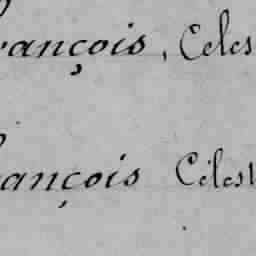 rançois, Celes
ançois Célest